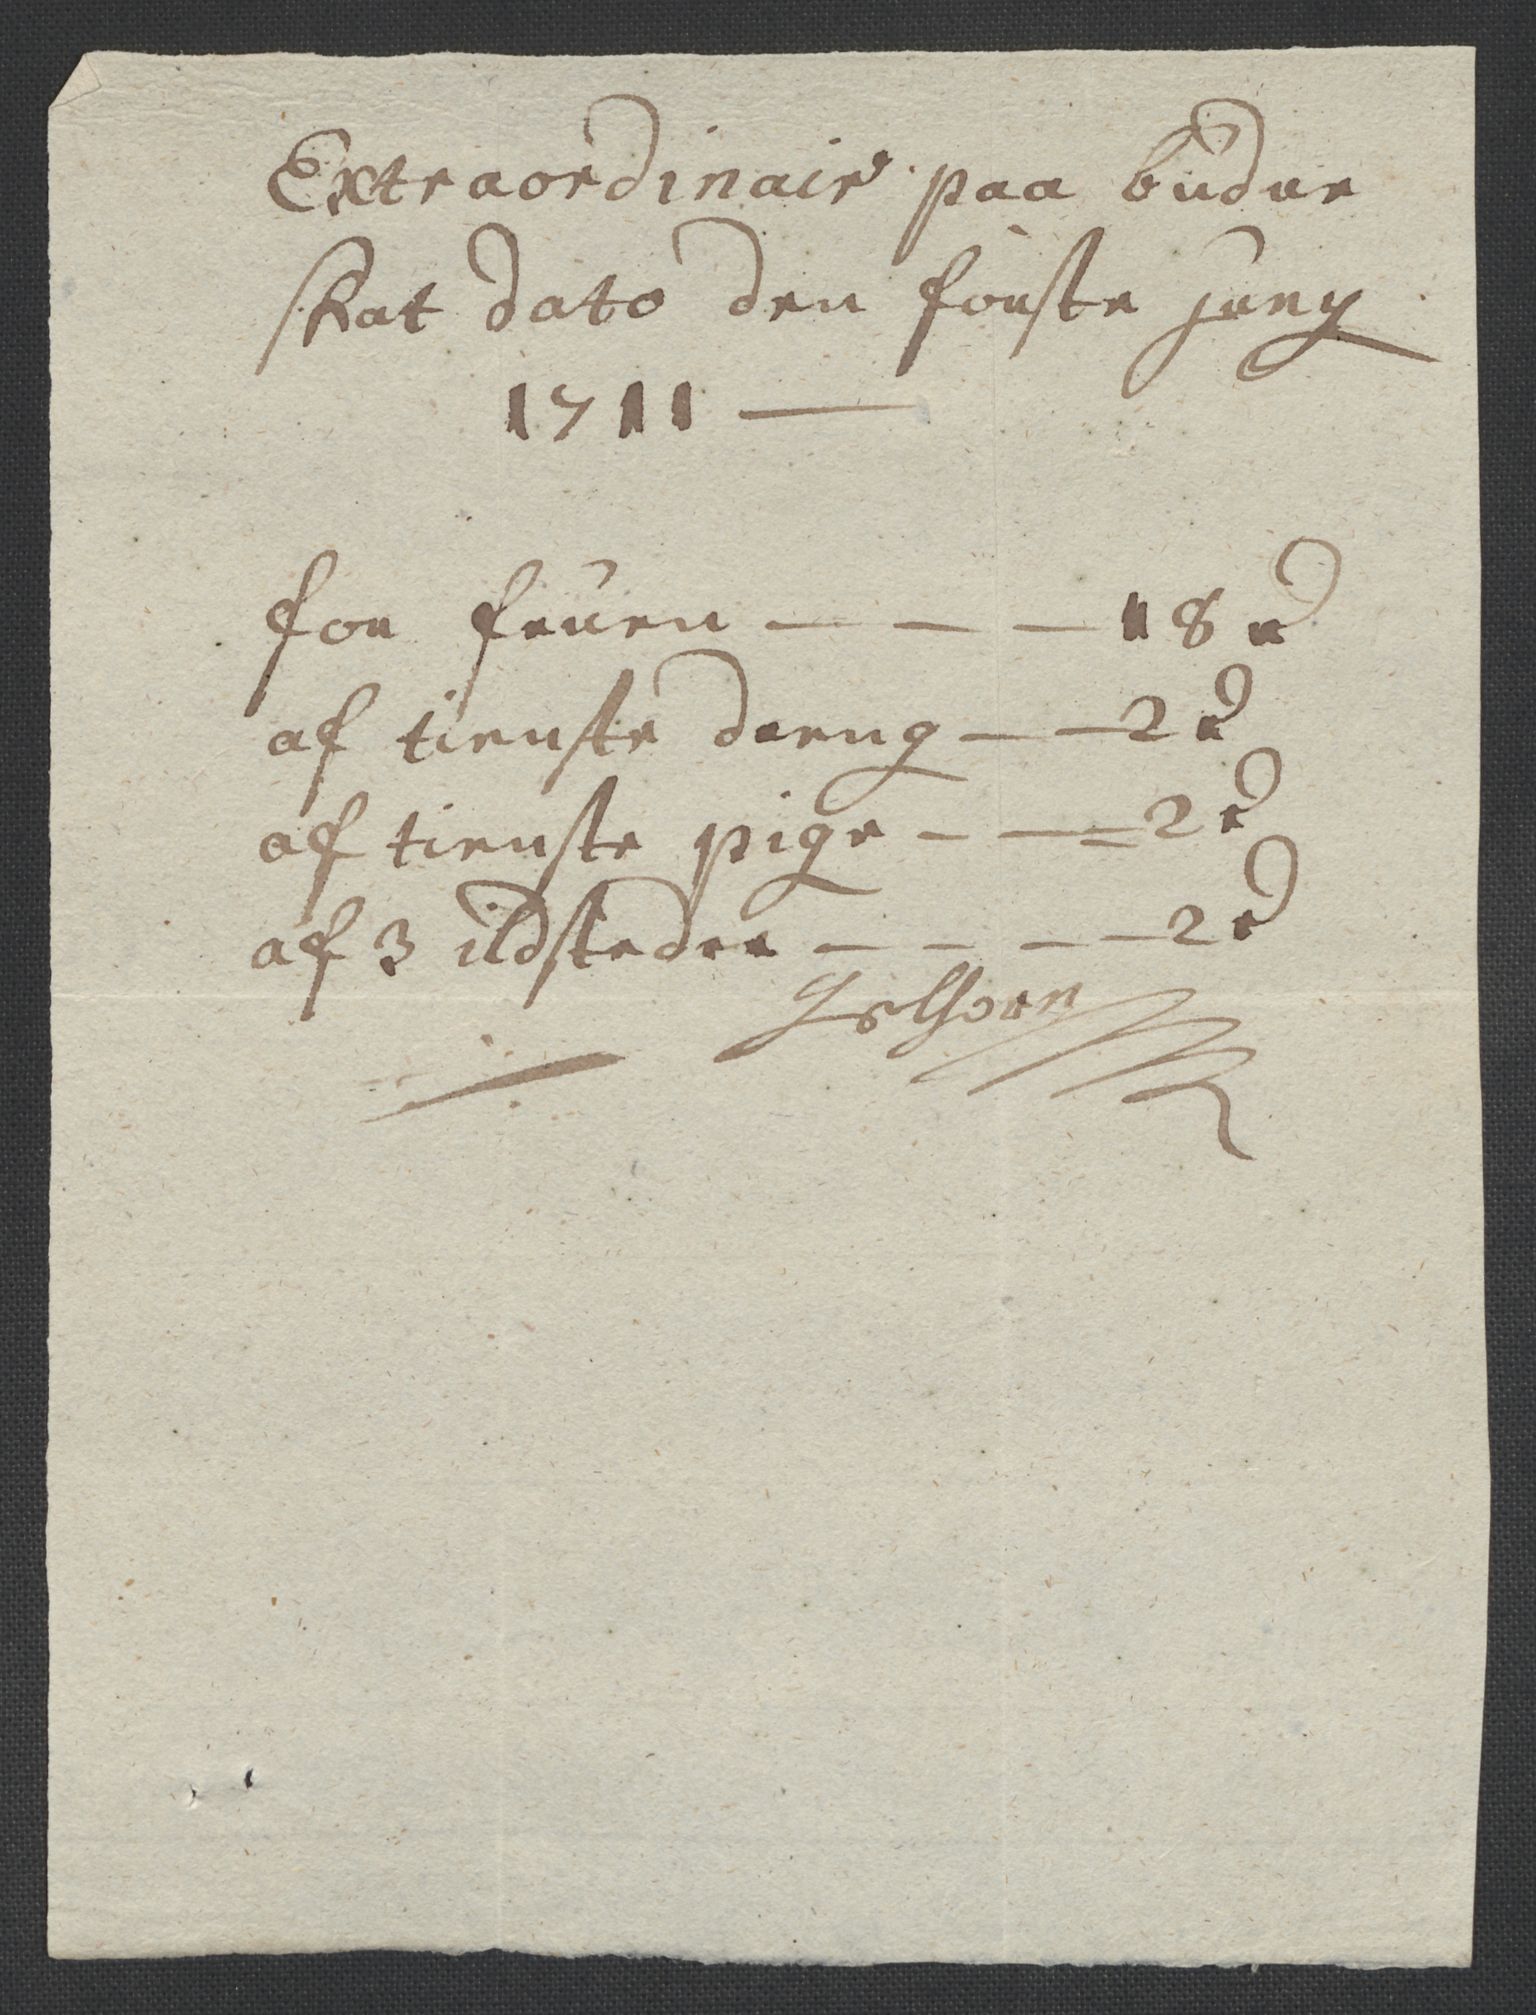 Extraordinair paa buden
skat dato den förste juny
1711 —
for fruen — — — 18 rd
af tienste dreng — — 2 rd
af tienste pige — — = 2 rd
af 3 ildsteder — — — — 2 rd